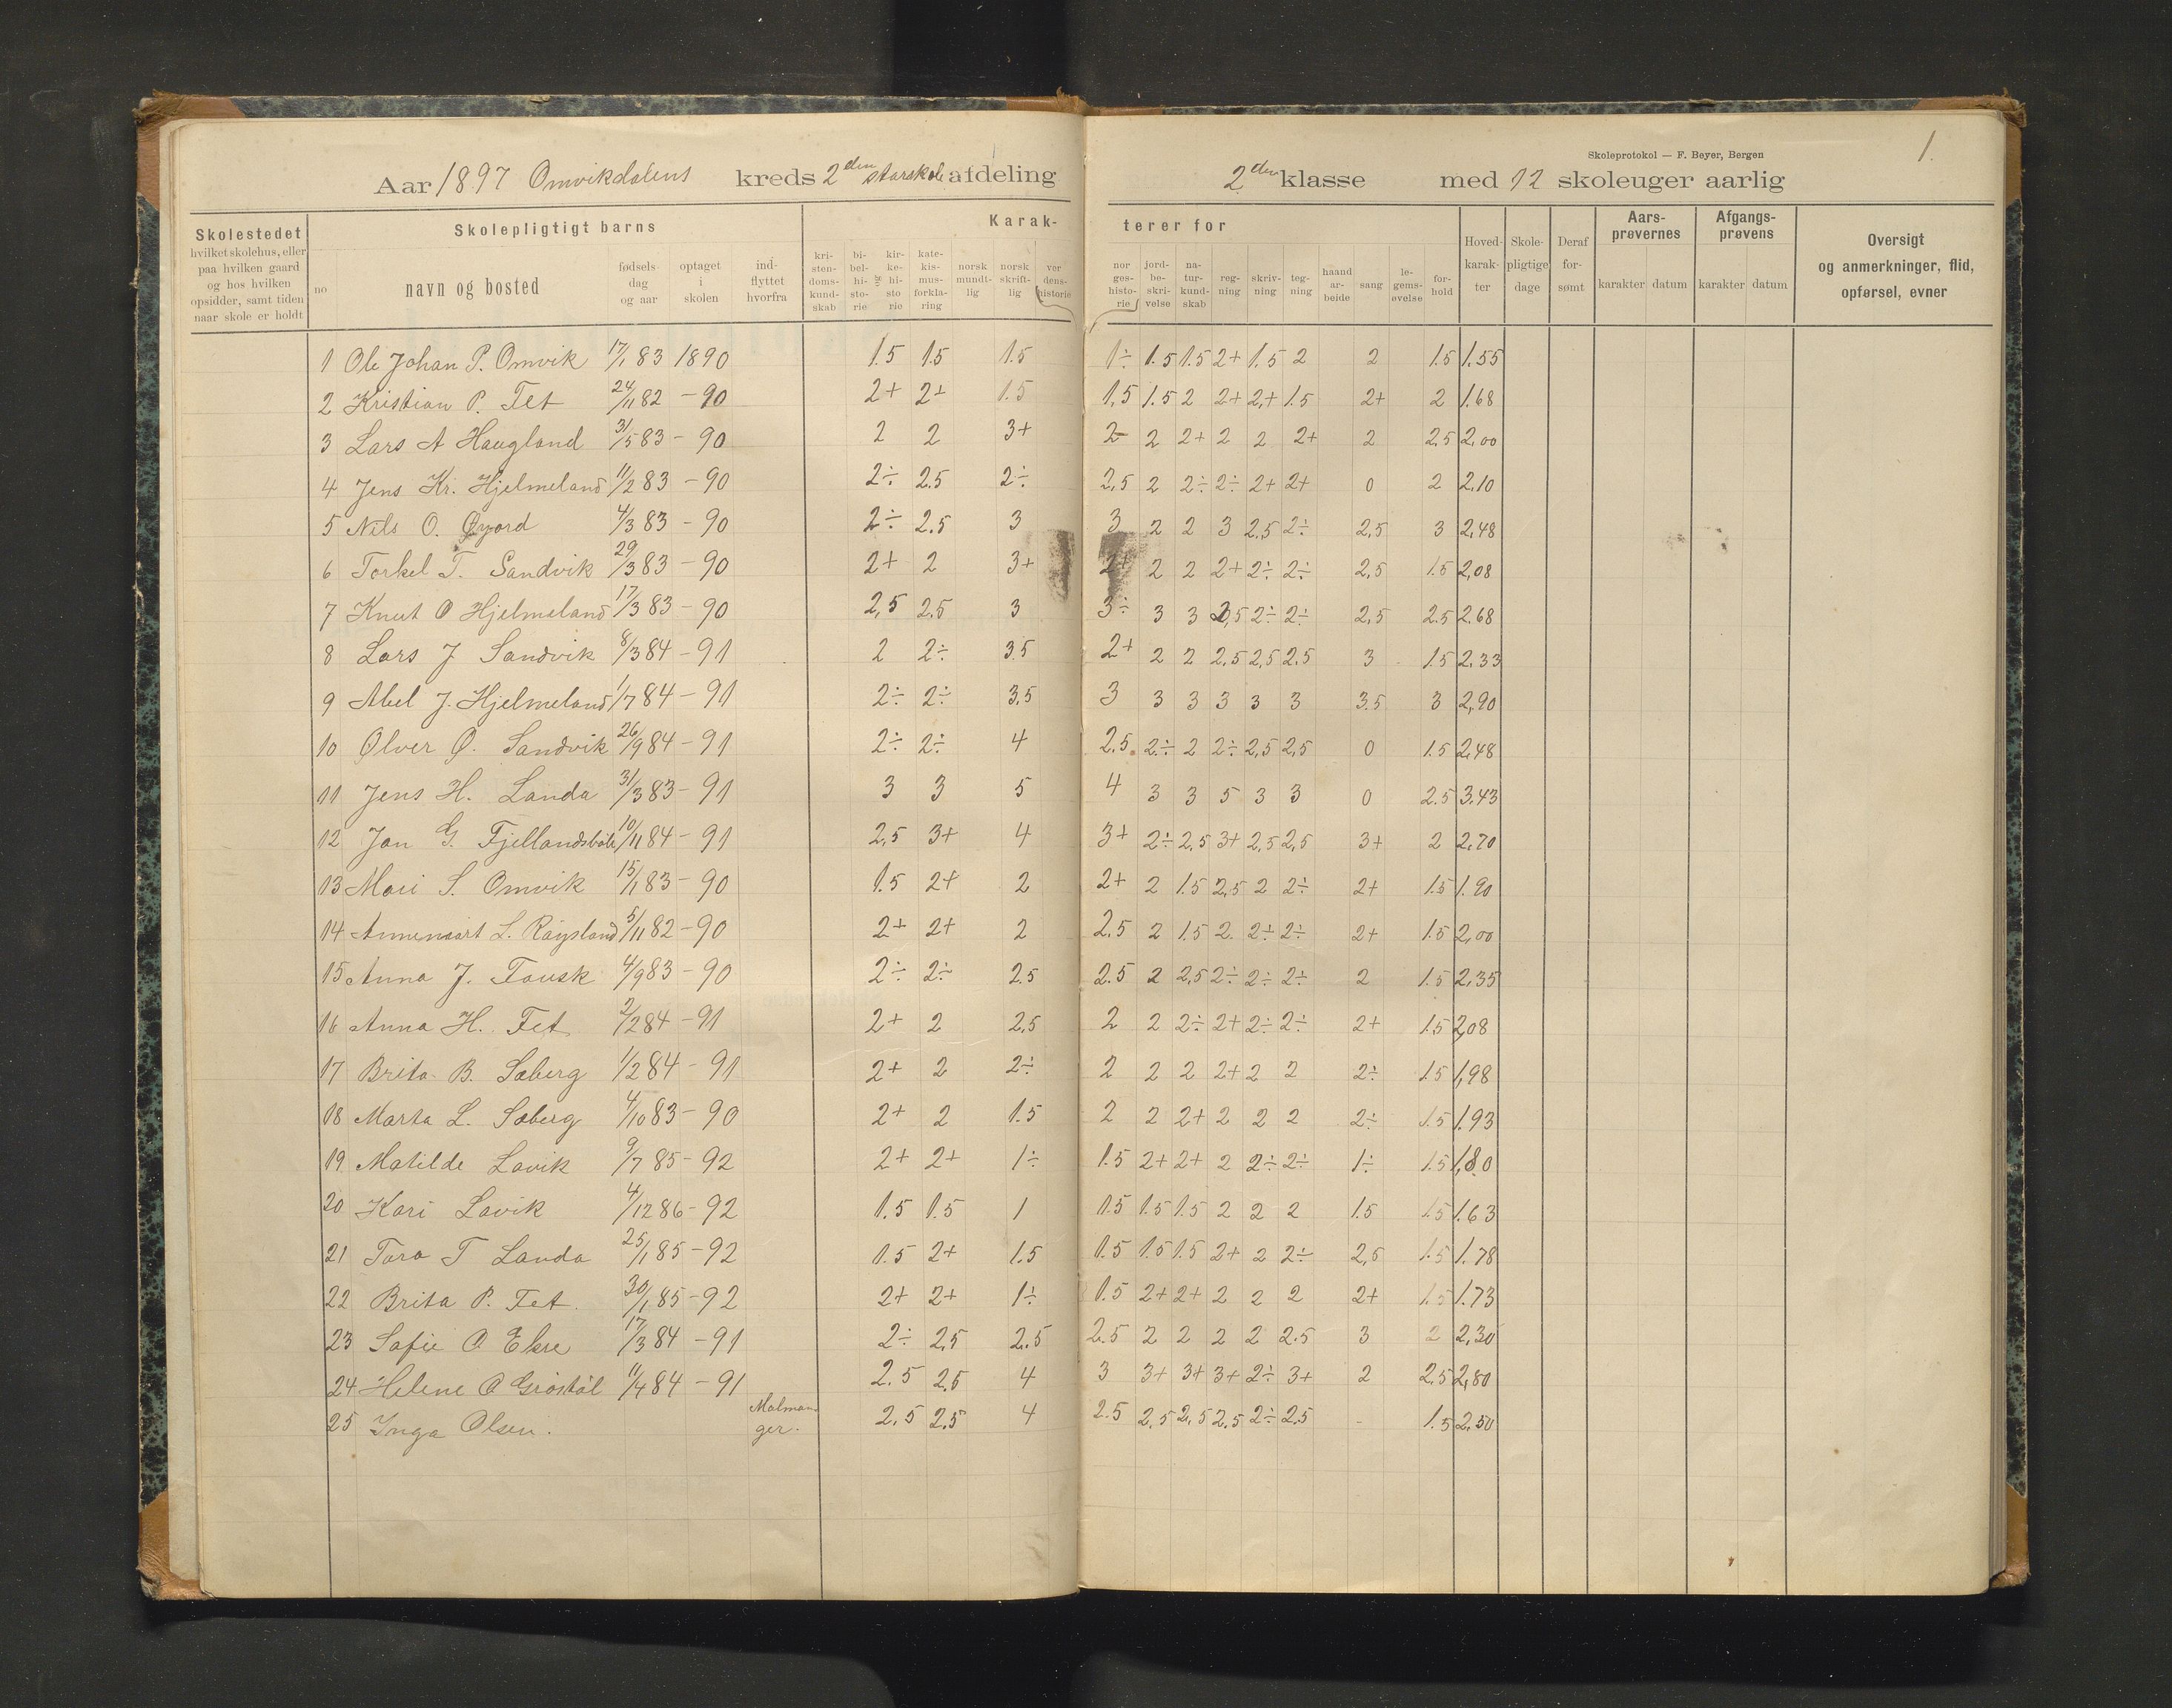 Skoleprotokol — F. Beyer, Bergen
1.
Aar 1897 Omvikdalens kreds 2den storskole afdeling 2den klasse med 12 skoleuger aarlig
Skolestedet
hvilket skolehus, eller
paa hvilken gaard
og hos hvilken
opsidder, samt tiden
naar skole er holdt
Skolepligtigt barns
no
navn og bosted
fødsels dag og aar
optaget i skolen
ind-flyttet hvorfra
Karak-
terer for
kri-sten-doms-kund-skab
bi-bel-hi-sto-rie
og
kir-ke-hi-sto-rie
kate-kis-mus-forkla-ring
norsk mundt-lig
norsk skrift-lig
ver dens-historie
nor ges-histo-rie
jord-be-skri-velse
na-tur-kund-skab
reg-ning
skriv-ning
teg-ning
haand ar-beide
sang
le-gems-øvelse
for-hold
Hoved-karak-ter
Skole-pligtige dage
Deraf for-sømt
Aars-prøvernes
karakter datum
Afgangs-prøvens
karakter datum
Oversigt
og anmerkninger, flid,
opførsel, evner
1 Ole Johan P. Omvik 17/1 83 1890 1.5 1.5 1.5 1÷ 1.5 1.5 2+ 1.5 2 2 1.5 1.55
2 Kristian P. Fet 24/11 82 - 90 2+ 2+ 1.5 1,5 1.5 2 2+ 2+ 1.5 2+ 2 1.68
3 Lars A Haugland 31/5 83 - 90 2 2 3+ 2 2 2+ 2 2 2+ 2 2,5 2,00
4 Jens Kr. Hjelmeland 11/2 83 - 90 2÷ 2.5 2÷ 2,5 2 2÷ 2÷ 2+ 2+ 0 2 2,10
5 Nils O. Øyord 4/3 83 - 90 2÷ 2.5 3 3 2 2 3 2.5 2÷ 2,5 3 2,48
6 Torkel T. Sandvik 29/3 83 - 90 2+ 2 3+ 2+ 2 2 2+ 2÷ 2÷ 2,5 1.5 2,08
7 Knut O Hjelmeland 17/3 83 - 90 2,5 2.5 3 3÷ 3 3 2,5 2÷ 2÷ 2,5 2.5 2.68
8 Lars J Sandvik 8/3 84 - 91 2 2÷ 3.5 2+ 2 2 2,5 2,5 2.5 3 1.5 2,33
9 Abel J. Hjelmeland 1/7 84 - 91 2÷ 2÷ 3,5 3 3 3 3 3 3 3.5 3 2,90
10 Ølver Ø. Sandvik 26/9 84 - 91 2÷ 2÷ 4 2.5 2÷ 2 2÷ 2,5 2,5 0 1.5 2,48
11 Jens H. Landa 31/3 83 - 91 3 3 5 4 3 3 5 3 3 0 2.5 3.43
12 Jan G. 10/11 84 - 91 2,5 3+ 4 3+ 2÷ 2,5 3+ 2,5 2,5 3+ 2 2,70
13 Mari S. Omvik 15/1 83 - 90 1.5 2+ 2 2+ 2 1.5 2,5 2 2÷ 2+ 1.5 1.90
14 L. 5/11 82 - 90 2+ 2+ 2 2.5 2 1.5 2 2÷ 2÷ 2+ 1.5 2,00
15 Anna J. Tousk 4/9 83 - 90 2÷ 2÷ 2.5 2.5 2 2,5 2÷ 2÷ 2÷ 2 1.5 2,35
16 Anna H. Fet 2/2 84 - 91 2+ 2 2,5 2 2 2÷ 2+ 2÷ 2÷ 2+ 1.5 2,08
17 Brita B. Sæberg 1/2 84 - 91 2+ 2 2÷ 2 2 2 2+ 2 2 2÷ 1.5 1,98
18 Marta L. Sæberg 4/10 83 - 90 2+ 2 1.5 2 2 2+ 2 2 2 2÷ 1.5 1.93
19 Matilde Lavik 9/7 85 - 92 2+ 2+ 1÷ 1.5 2+ 2+ 2 2÷ 2÷ 1÷ 1.5 1,80
20 Kari Lavik 4/12 86 - 92 1.5 1.5 1 1.5 1.5 1.5 2 2 2 1.5 1.5 1.63
21 Tora T Landa 25/1 85 - 92 1.5 2+ 1.5 1.5 1.5 1.5 2+ 2 2÷ 2,5 1.5 1.78
22 Brita P. Fet. 30/1 85 - 92 2+ 2+ 1÷ 1.5 2+ 2+ 2 2 2 2+ 1.5 1.73
23 Sofie O Ekre 17/3 84 - 91 2÷ 2,5 2.5 2.5 2 2 2 2 2.5 3 2 2,30
24 Helene O Grostøl 11/4 84 - 91 2.5 2.5 4 3 3+ 3+ 3+ 2÷ 3+ 2 2,5 2,80
25 Inga Olsen. Malmanger. 2,5 2.5 4 2.5 2,5 2,5 2,5 2÷ 2.5 - 1.5 2,50